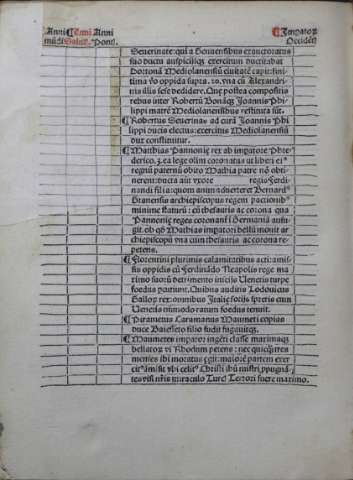 Anni Anni Anni Impator
mūdi Salut. Pont. Occidēt
Seuerinate: qui a Genuensibus exauctoratus
suo ductu auspicijsq; exercitum ductabat
Dertonā Mediolanensiū ciuitatē capit: fini
tima ꝙ oppida supra .50. vna cū Alexandri
nis illi sese dedidere. Quę postea compositis
rebus inter Robertū Bonāq; Joannis Phi
lippi matrē Mediolanensibus restituta sūt.
¶ Robertus Seuerinas ad curā Joannis Phi
lippi ducis electus: exercitus Mediolanensiū
dux constituitur.
¶ Matthias Pannonię rex ab impatore Phe
derico, ea lege olim coronatus vt liberi ei
regnū paternū obito Mathia patre nō obti
nerent: ducta aūt vxore regis Ferdi
nandi filia: quom animaduerteret Bernard
archiepiscopus regem pactionib
minime staturū : cū thesauris ac corona qua
Pannonię reges coronant i Germaniā aufu
git. ob qđ Mathias impatori bellū mouit ar
chiepiscopū vna cum thesauris ac corona re
petens.
¶ Florentini plurimis calamitatibus acti: amis
sis oppidis cū Ferdinādo Neapolis rege ma
ximo suorū detrimento inscijs Venetis turpe
foedus pariunt. Quibus auditis Lodouicus
Gallor rex: omnibus Italię socijs spretis cum
Venetis nūmodo ratum foedus tenuit.
¶ Pirametus Caramanus Maumeti copias
duce Baiesseto filio fudit fugauitq;.
¶ Maumetes impator ingēti classe marinaq;
bellator vi Rhodum petens : nec quicq̄ tres
menses ibi moratus egit: maiorē partem exer
citꝰ amisit vbi celitꝰ Christi ihū mistri, ppugnā
tes visi. nr̄is miraculo Turci terrori fuere maximo.